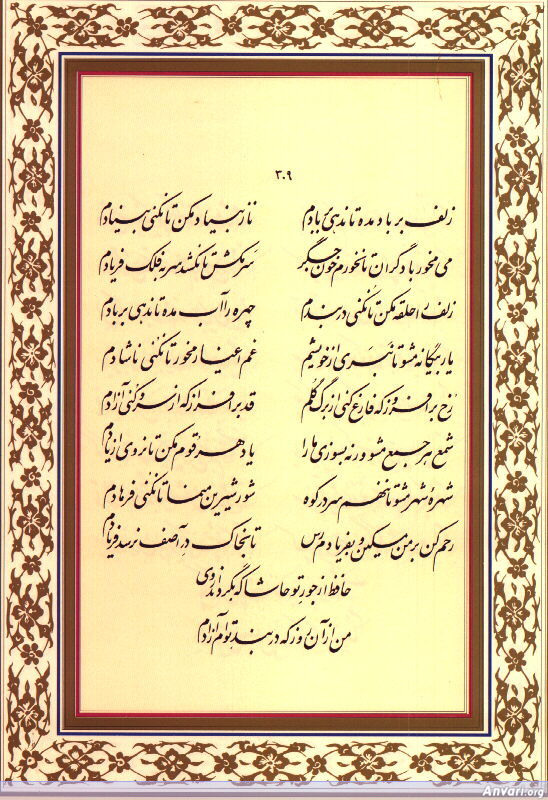 ۳۰۹
زلف بر باد مده تا ندهی بر بادم ناز بنیاد مکن تا نکنی بنیادم
می مخور با دگران تا نخورم خون جگر سر مکش تا نکشد سر به فلک فریادم
زلف را حلقه مکن تا نکنی در بندم چهره را آب مده تا ندهی بر بادم
یار بیگانه مشو تا نبری از خویشم غم اغیار مخور تا نکنی ناشادم
رخ برافروز که فارغ کنی از برگ گلم قد برافراز که از سرو کنی آزادم
شمع هر جمع مشو ورنه بسوزی ما را یاد هر قوم مکن تا نروی از یادم
شهرهٔ شهر مشو تا ننهم سر در کوه شور شیرین منما تا نکنی فرهادم
رحم کن بر من مسکین و بفریادم رس تا بخاک در آصف نرسد فریادم
حافظ از جور تو حاشا که بگرداند روی
من از آن روز که در بند توام آزادم
Anvari.org